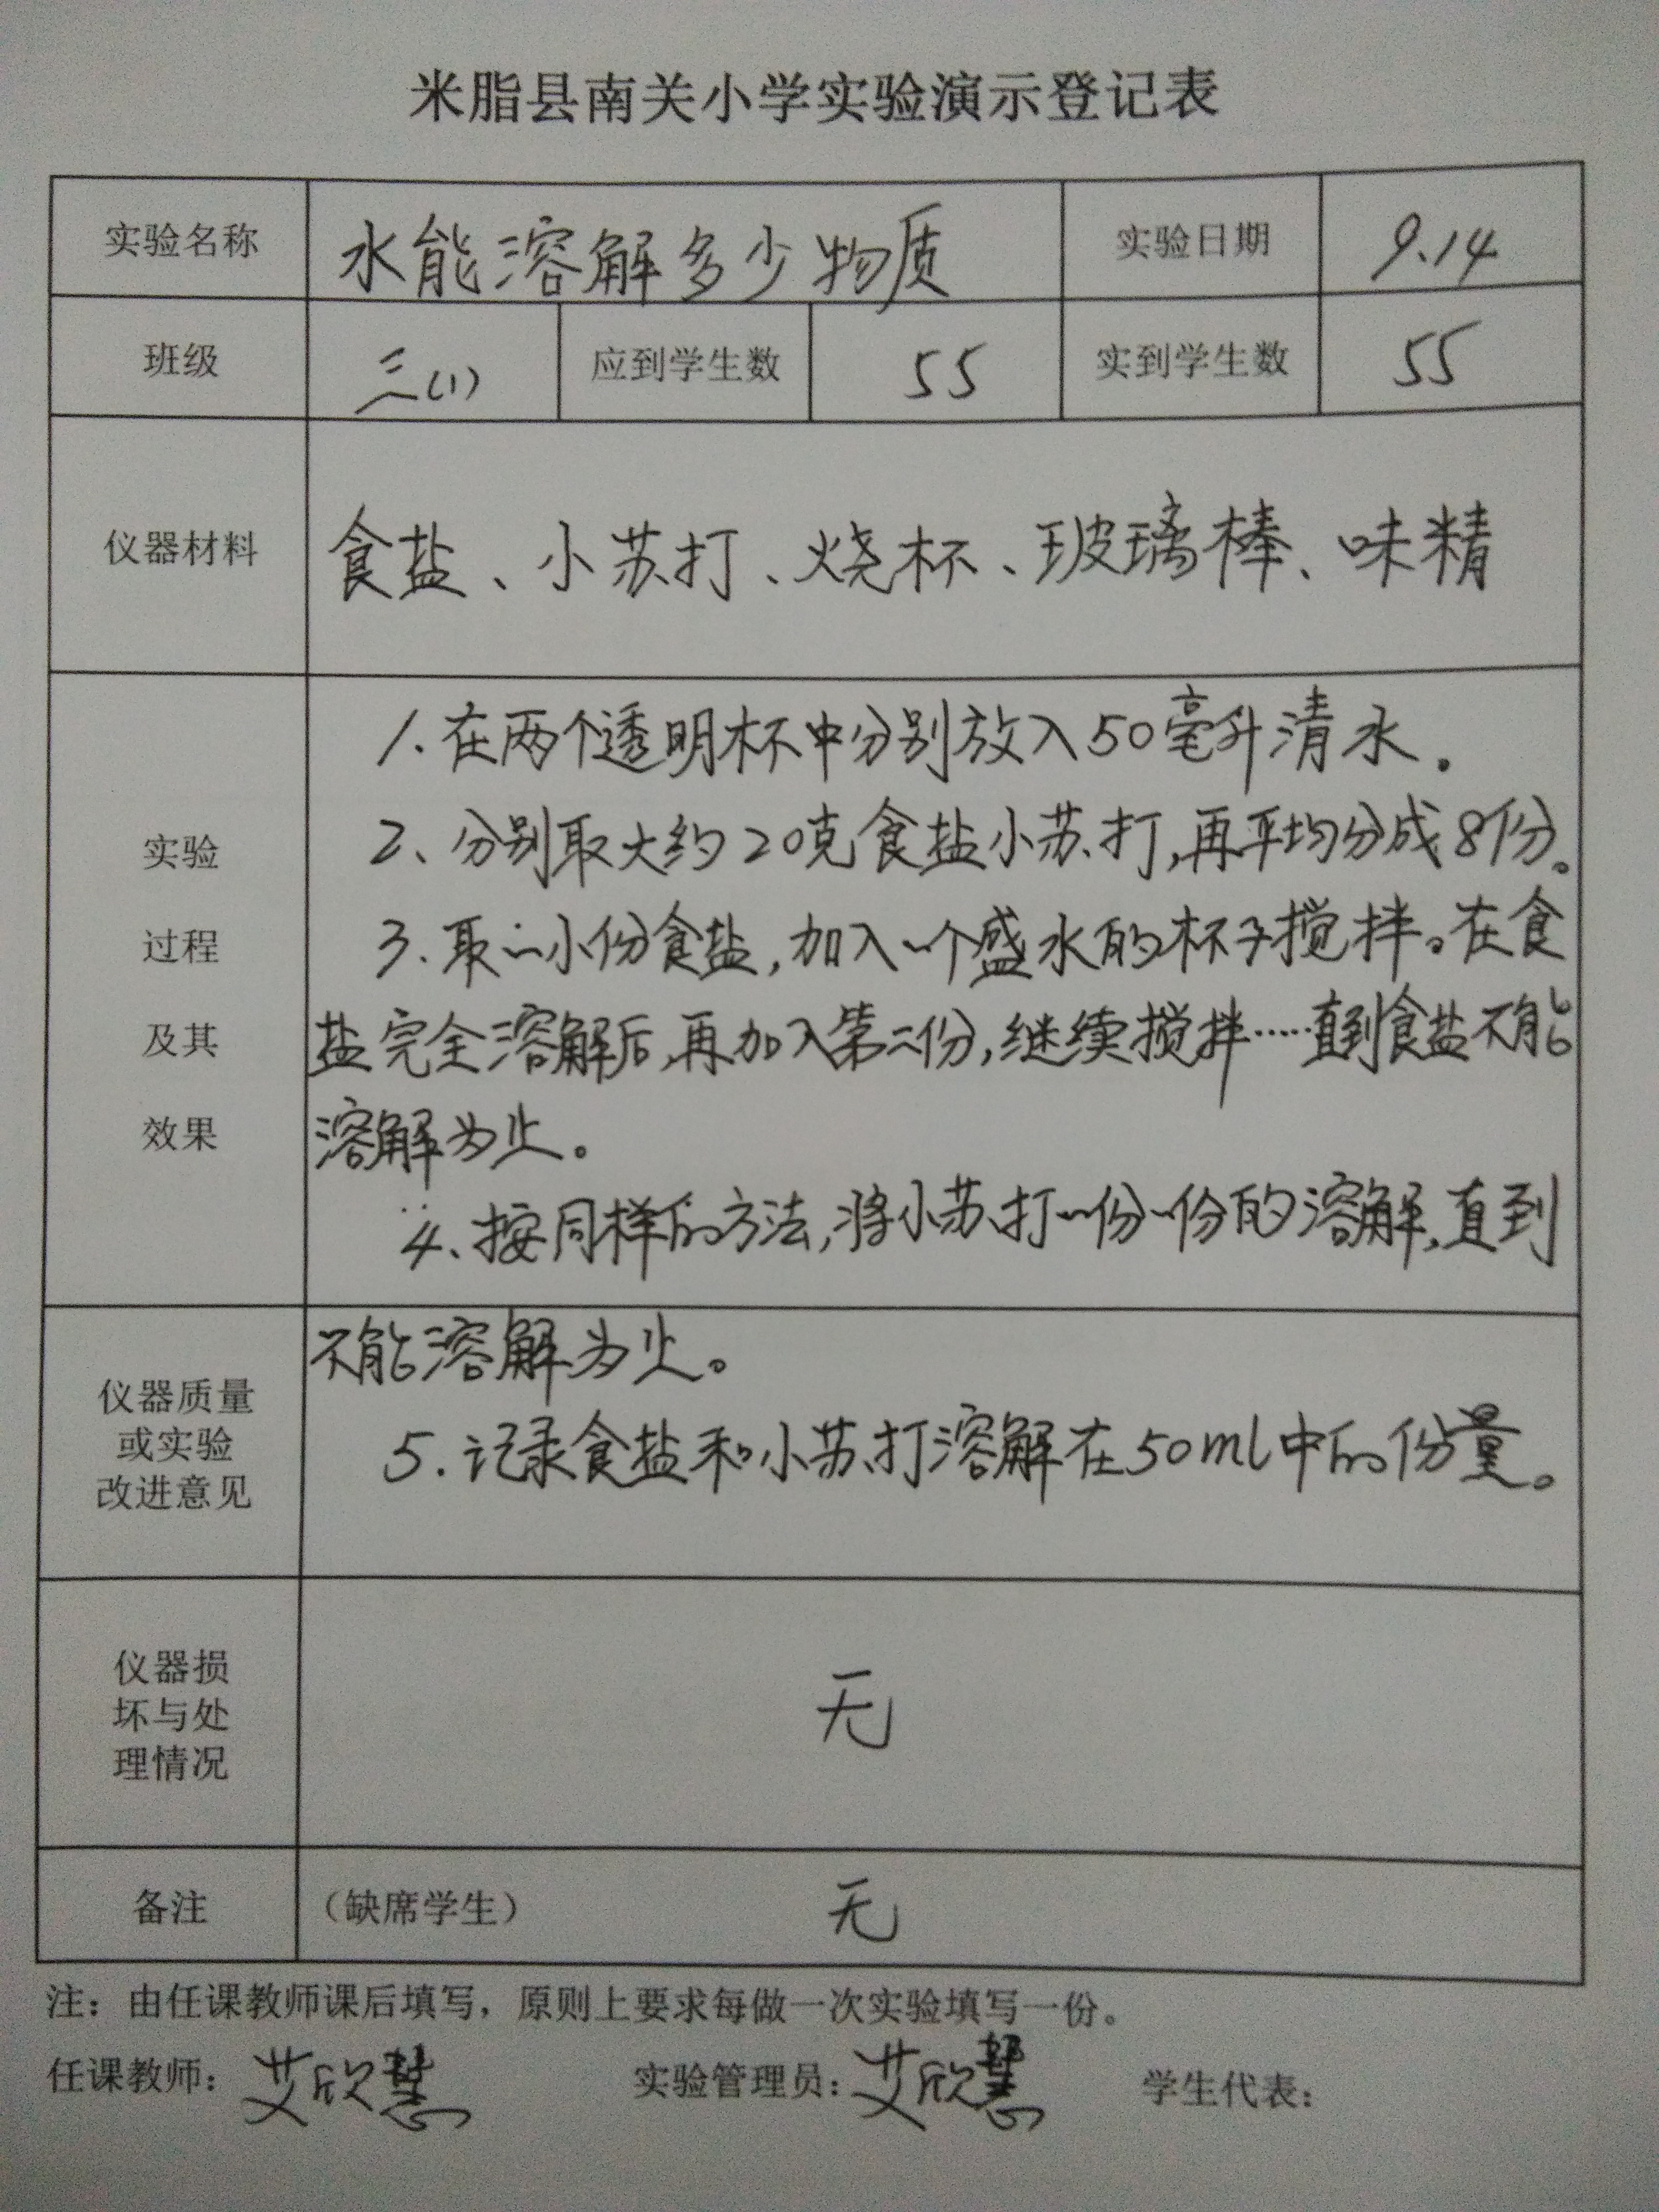 米脂县南关小学实验演示登记表
实验名称 水能溶解多少物质 实验日期 9.14
班级 三(1) 应到学生数 55 实到学生数 55
仪器材料 食盐、小苏打、烧杯、玻璃棒、味精
实验
过程
及其
效果
1.在两个透明杯中分别放入50毫升清水。
2、分别取大约20克食盐小苏打,再平均分成8份。
3.取一小份食盐,加入一个盛水的杯子搅拌。在食
盐完全溶解后,再加入第二份,继续搅拌……直到食盐不能
溶解为止。
4、按同样的方法,将小苏打一份一份的溶解,直到
仪器质量
或实验
改进意见
不能溶解为止。
5.记录食盐和小苏打溶解在50ml中的份量。
仪器损
坏与处
理情况
无
备注 (缺席学生) 无
注：由任课教师课后填写，原则上要求每做一次实验填写一份。
任课教师：艾欣慧 实验管理员：艾欣慧 学生代表：